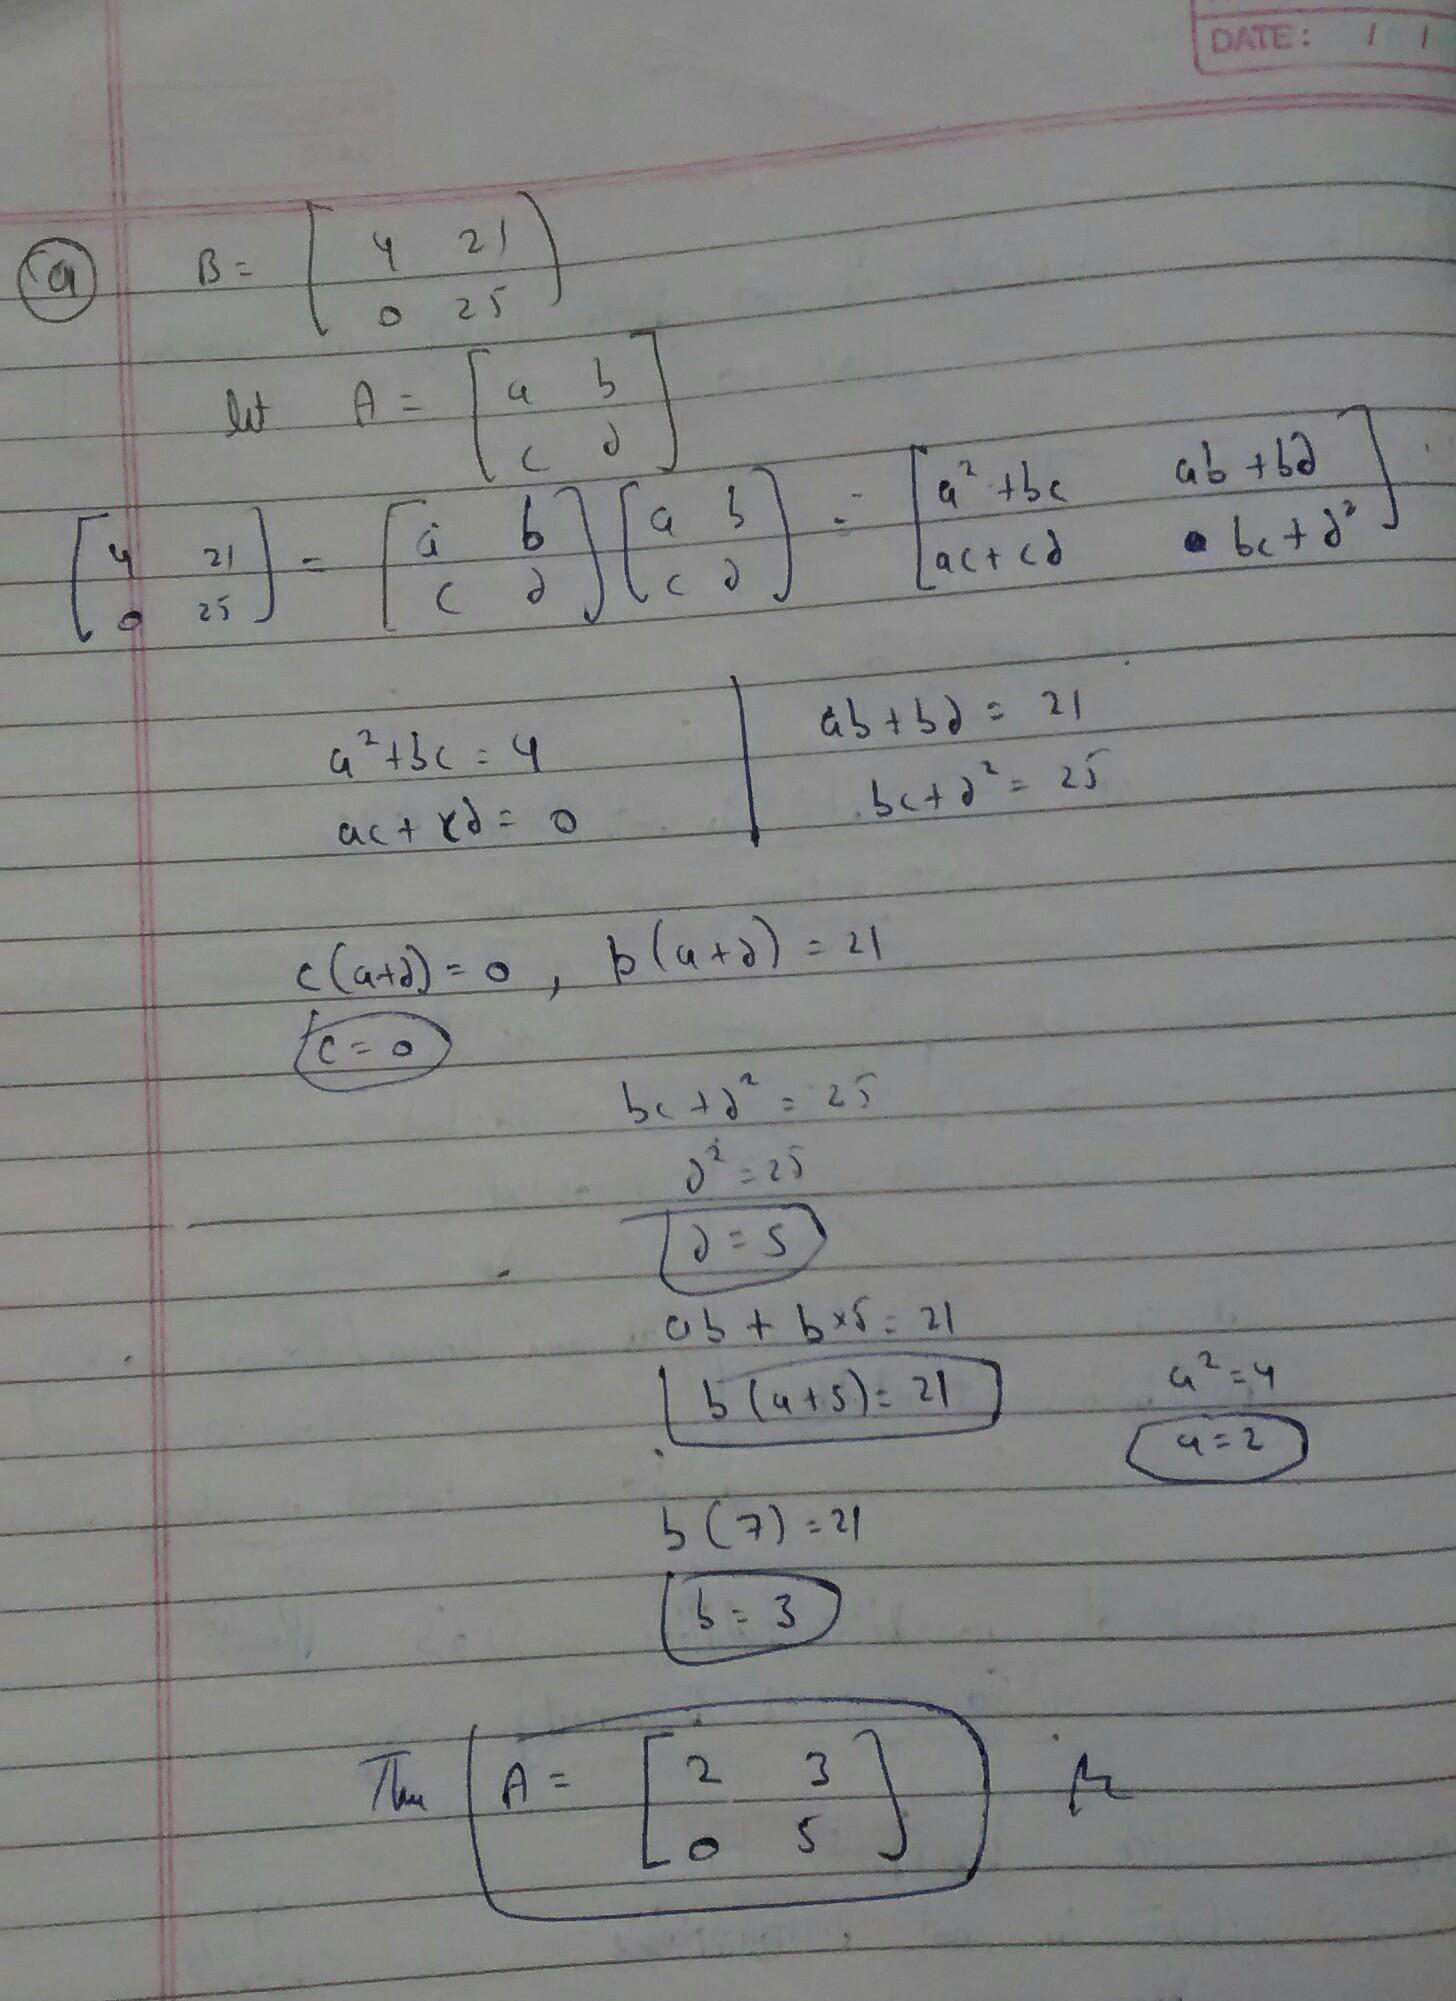 DATE: / /
(a) B = [ 4 21
0 25 ]
let A = [ a b
c d ]
[ 4 21
0 25 ] = [ a b
c d ] [ a b
c d ] = [ a² + bc ab + bd
ac + cd bc + d² ]
a² + bc = 4 | ab + bd = 21
ac + xd = 0 | bc + d² = 25
c(a+d) = 0 , b(a+d) = 21
c = 0
bc + d² = 25
d² = 25
d = 5
ab + b×5 = 21
b(a+5) = 21 a² = 4
a = 2
b(7) = 21
b = 3
Thus A = [ 2 3
0 5 ]